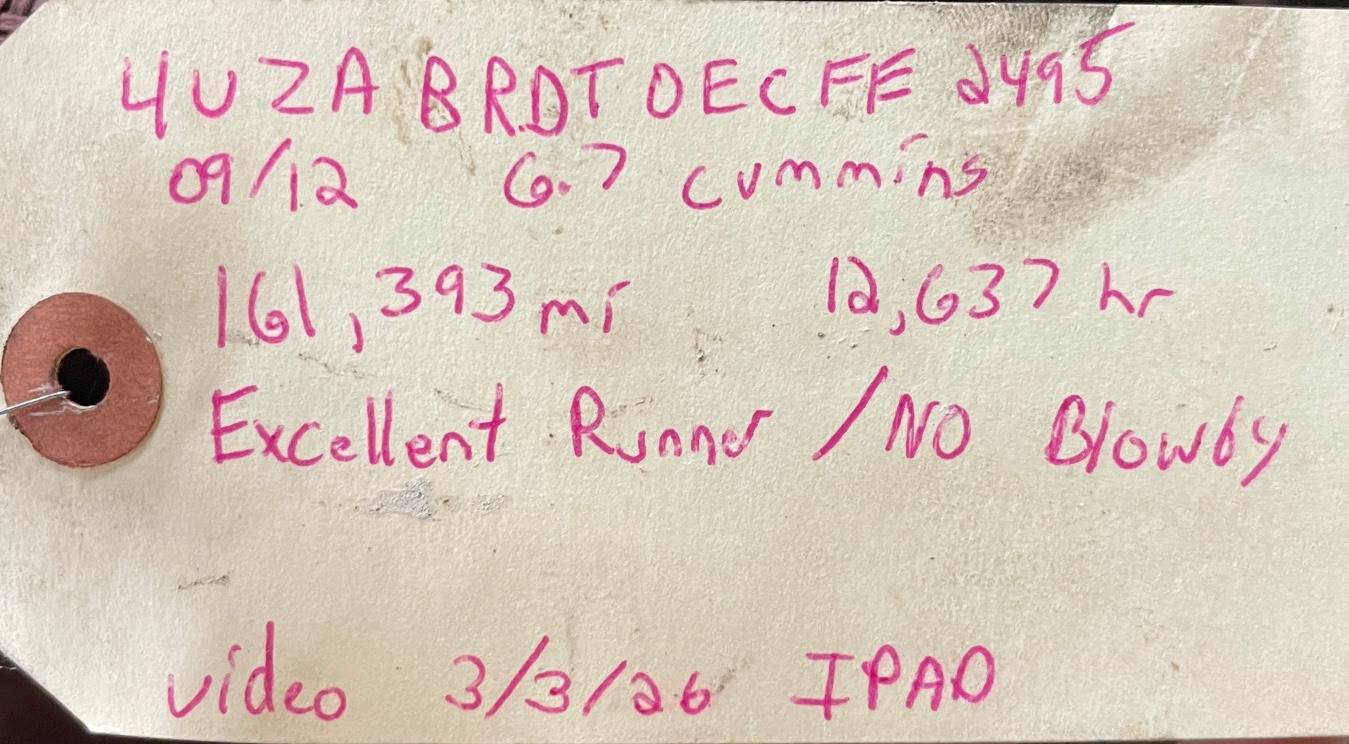 4UZABRDTOECFF2495
09/12 6.7 cummins
161,393 mi 12,637 hr
Excellent Runner / NO Blowby
video 3/3/26 IPAD